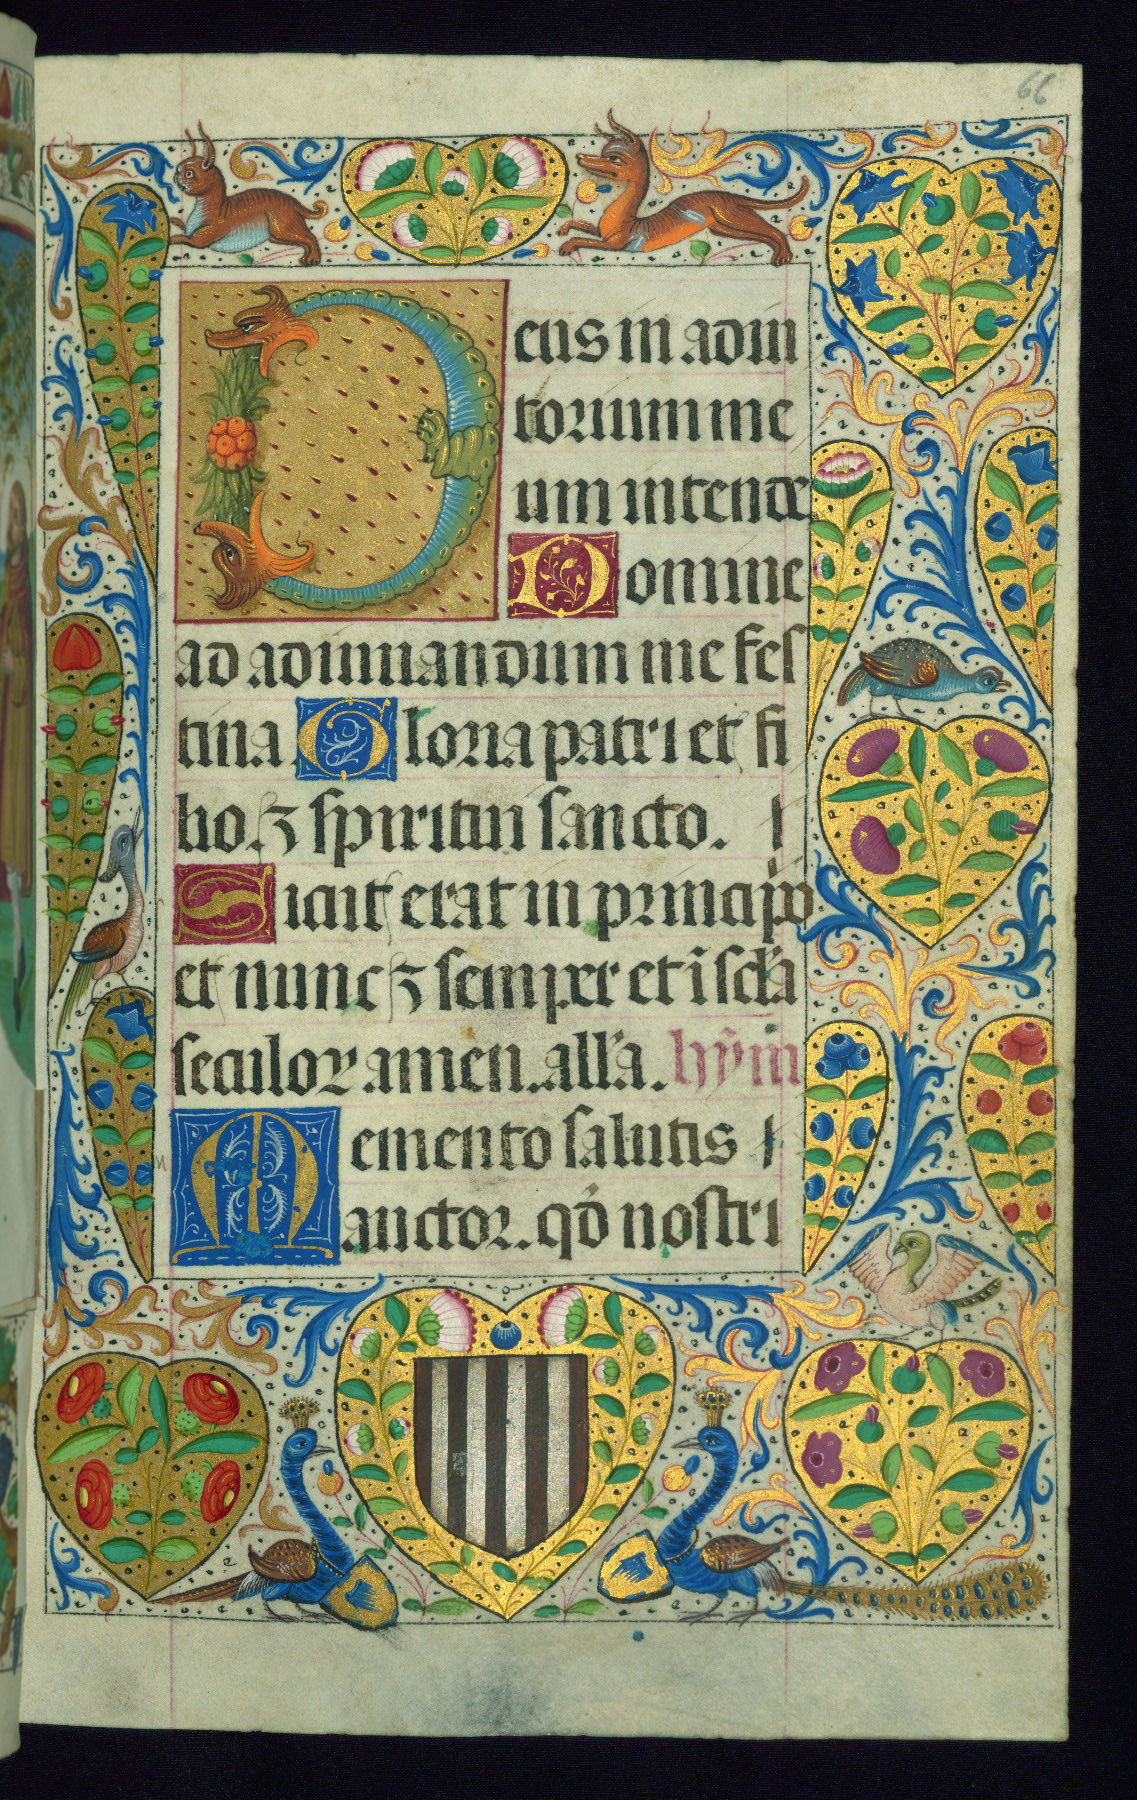 66
Deus in adiu
torium me
um intende
Domine
ad adiuuandum me fes
tina Gloria patri et fi
lio. ⁊ spiritui sancto.
Sicut erat in principio
et nunc ⁊ semper et i scl'a
seculoꝝ amen. all'a. hỹm
Memento salutis
auctor. qđ nostri